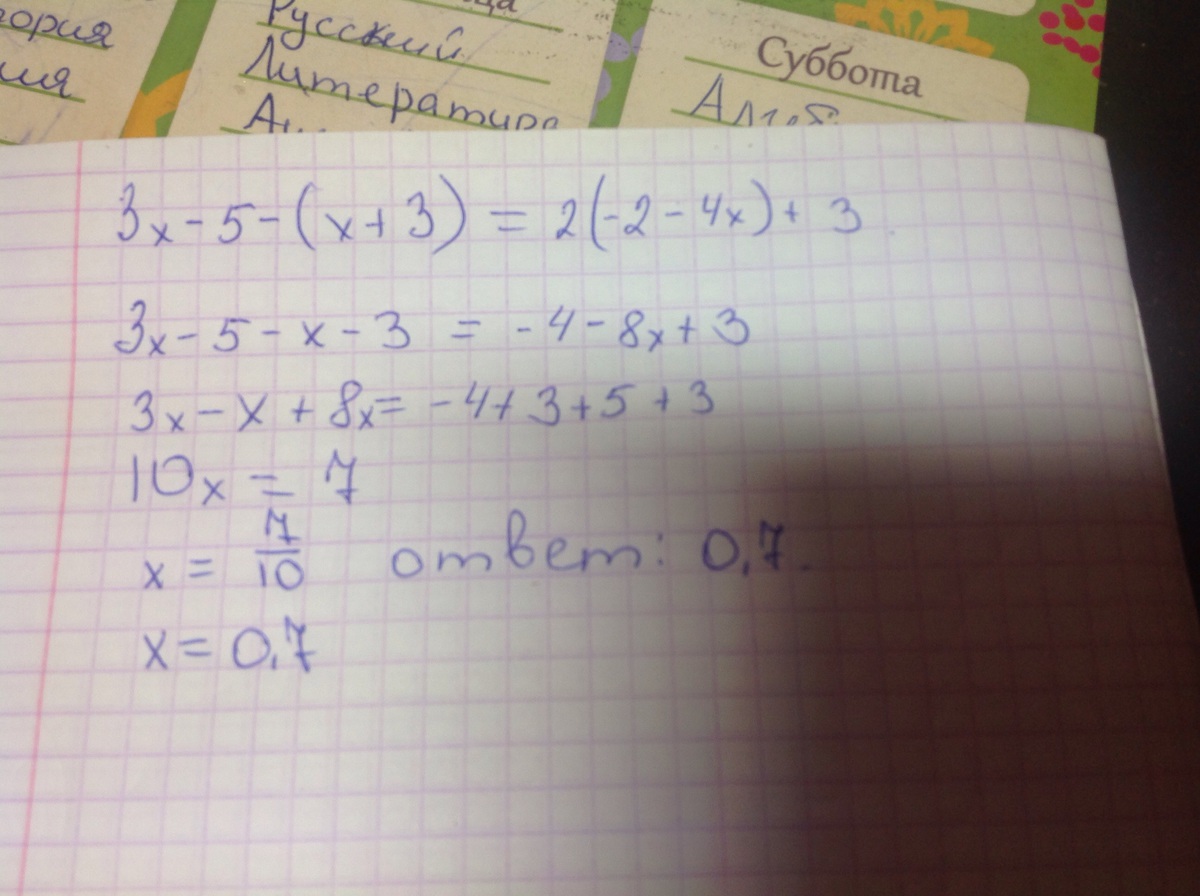 Русский
Литература
Суббота
3x - 5 - (x + 3) = 2(-2 - 4x) + 3
3x - 5 - x - 3 = -4 - 8x + 3
3x - x + 8x = -4 + 3 + 5 + 3
10x = 7
x = 7/10 ответ: 0,7.
x = 0,7